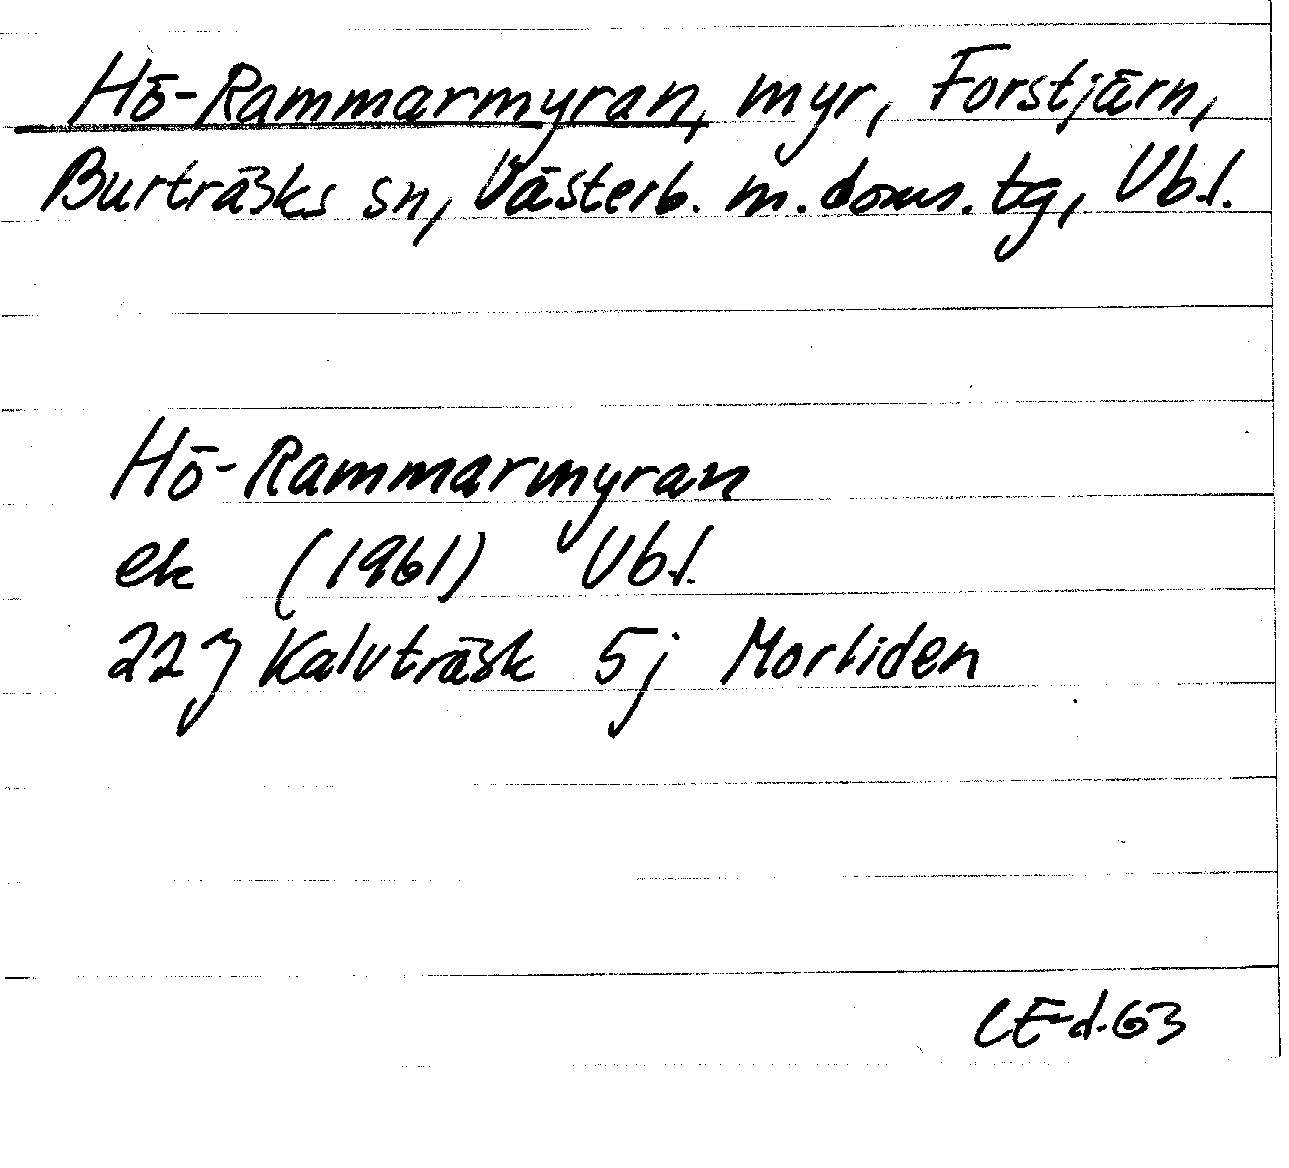 Hö-Rammarmyran, myr, Forstjärn,
Burträsks sn, Västerb. m. doms. tg, Vb.l.
Hö-Rammarmyran
ek (1961) Vb.l.
22 J Kalvträsk 5j Morliden
CE-d-63